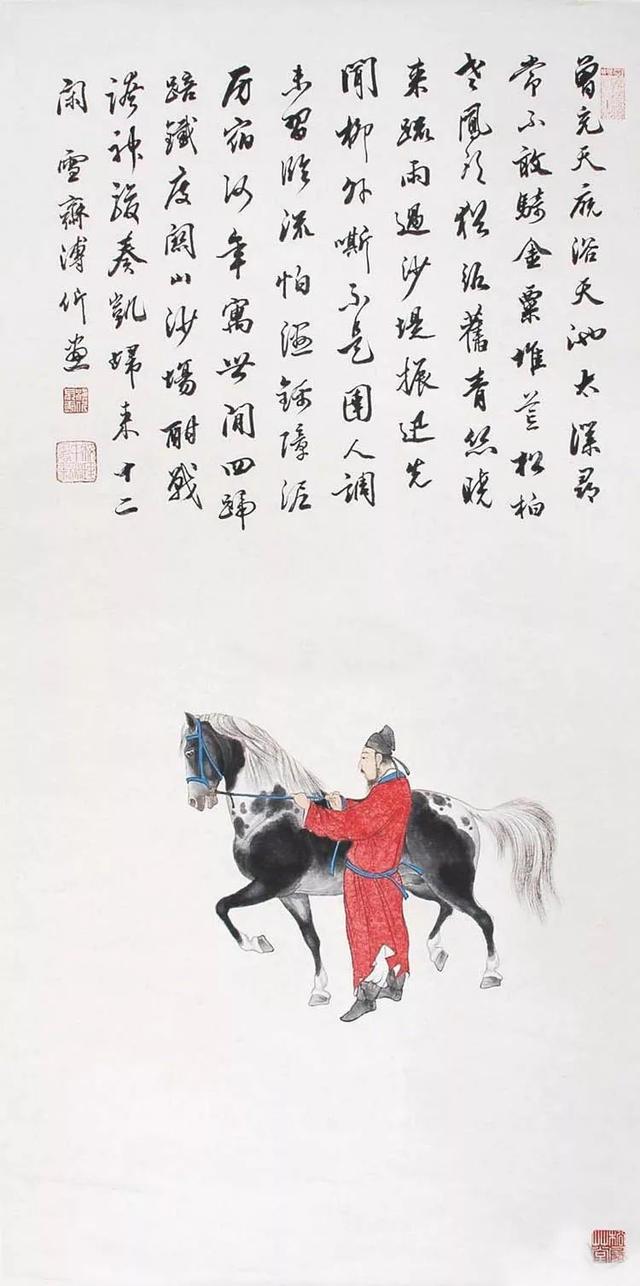 曾充天廄浴天池太深尋
常不敢騎金粟堆荒松柏
老鳳頭猶絡舊青絲曉
來疏雨過沙堤振迅先
聞柳外嘶不是圉人調
未習臨流怕溼錦障泥
房宿何年寓世間四蹄
踣鐵度關山沙場酣戰
誇神駿奏凱歸來十二
閑雪齋溥伒畫